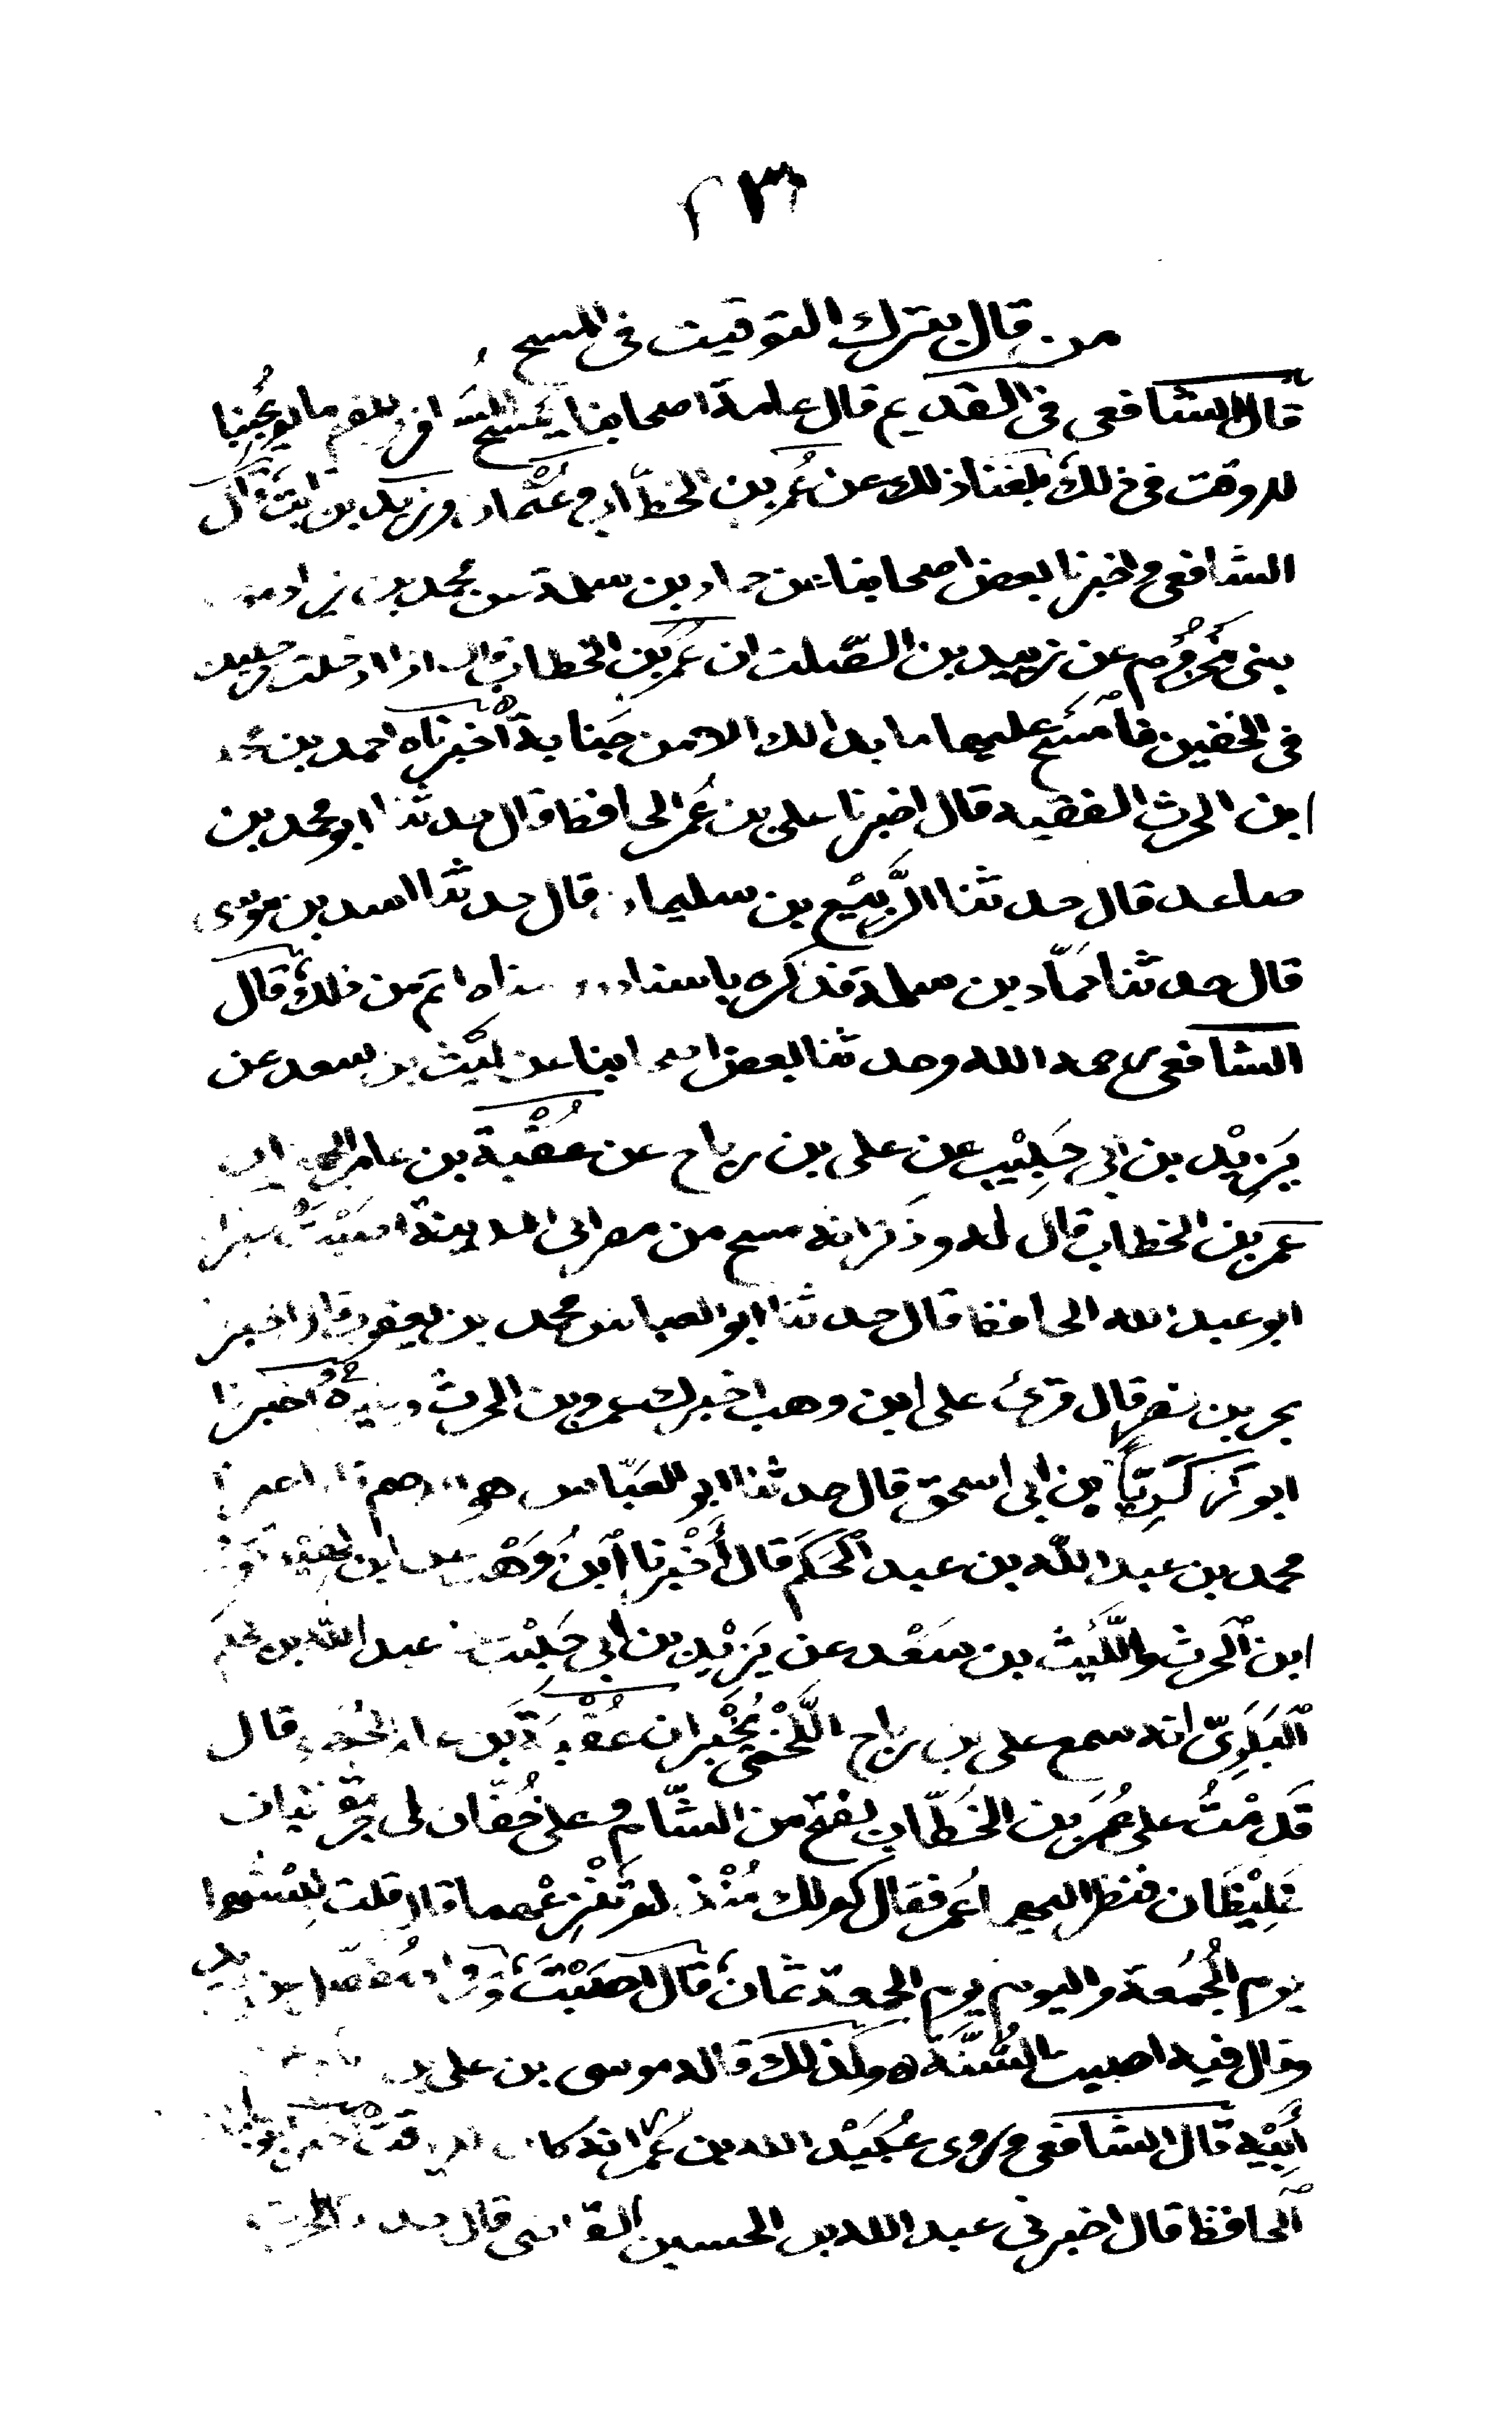 من قال بترك التوقيت فى المسح
قال الشافعى فى القديم قال عامة اصحابنا يمسح المسافر والمقيم ما لم يجنبا
للوقت فى ذلك بلغنا ذلك عن عُمر بن الخطّاب وعثمان وزيد بن ثابت قال
الشافعى واخبرنا بعض اصحابنا عن حماد بن سلمة عن محمد بن زياد مولى
بنى مخزوم عن زبيد بن الصّلت ان عُمر بن الخطاب قال اذا ادخلت رجليك
فى الخفين فامسَح عليهما ما بدا لك الا من جنابة أخبرناه احمد بن محمد
ابن الحرث الفقيه قال اخبرنا على بن عُمر الحافظ قال حدثنا ابو محمد بن
صاعد قال حدثنا الرَّبيْع بن سليمان قال حدثنا اسد بن موسى
قال حدثنا حمّاد بن سلمة فذكره باسناده معناه اتم من ذلك قال
الشافعى رحمه الله وحدثنا بعض اصحابنا عن ليْث بن سعد عن
يَزِيْد بن ابى حَبِيْب عن على بن رباح عن عُقْبة بن عامر ان
عمر بن الخطاب قال له وذكر انه مسح من مصر الى المدينة اصَبْتَ
ابو عبد الله الحافظ قال حدثنا ابو العباس محمد بن يعقوب قال اخبرنا
بحر بن نصر قال قرئ على ابن وهب اخبرك عمرو بن الحرث وغيره اخبرنا
ابو زكَرِيّا بن ابى اسحق قال حدثنا ابو العَبّاس هو الاصم
محمد بن عبد اللّه بن عبد الحَكَم قال أَخْبرنا ابنُ وَهْب
ابن الحرث واللَّيْث بن سَعْد عن يَزِيْد بن أبى حَبِيْب عبد اللّه بن الحكم
الْبَلَوِىّ انه سمع على بن رباح اللَّخْمىّ يُخْبِر ان عُقْبَة بن عامر الجُهَنىّ قال
قَدِمْتُ على عُمَر بن الخَطّاب بفتح من الشّام وعلى خُفّان لى جرمقانيان
غَلِيْظَان فنظر اليهما عُمر فقال كم لك مُنْذ لم تَنْزِعْهما قال قلت لبِسْتُهما
يوم الجُمُعة واليوم يوم الجمعة ثمان قال اصَبْتَ ورواه مُفَضّل بن
وقال فيه اصبت السُّنَّة وكذلك قاله موسى بن على بن رباح عن
أَبِيْه قال الشافعى وروى عُبَيْد الله بن عُمر انه كان
الحافظ قال اخبرنى عبد الله بن الحسين القاضى قال